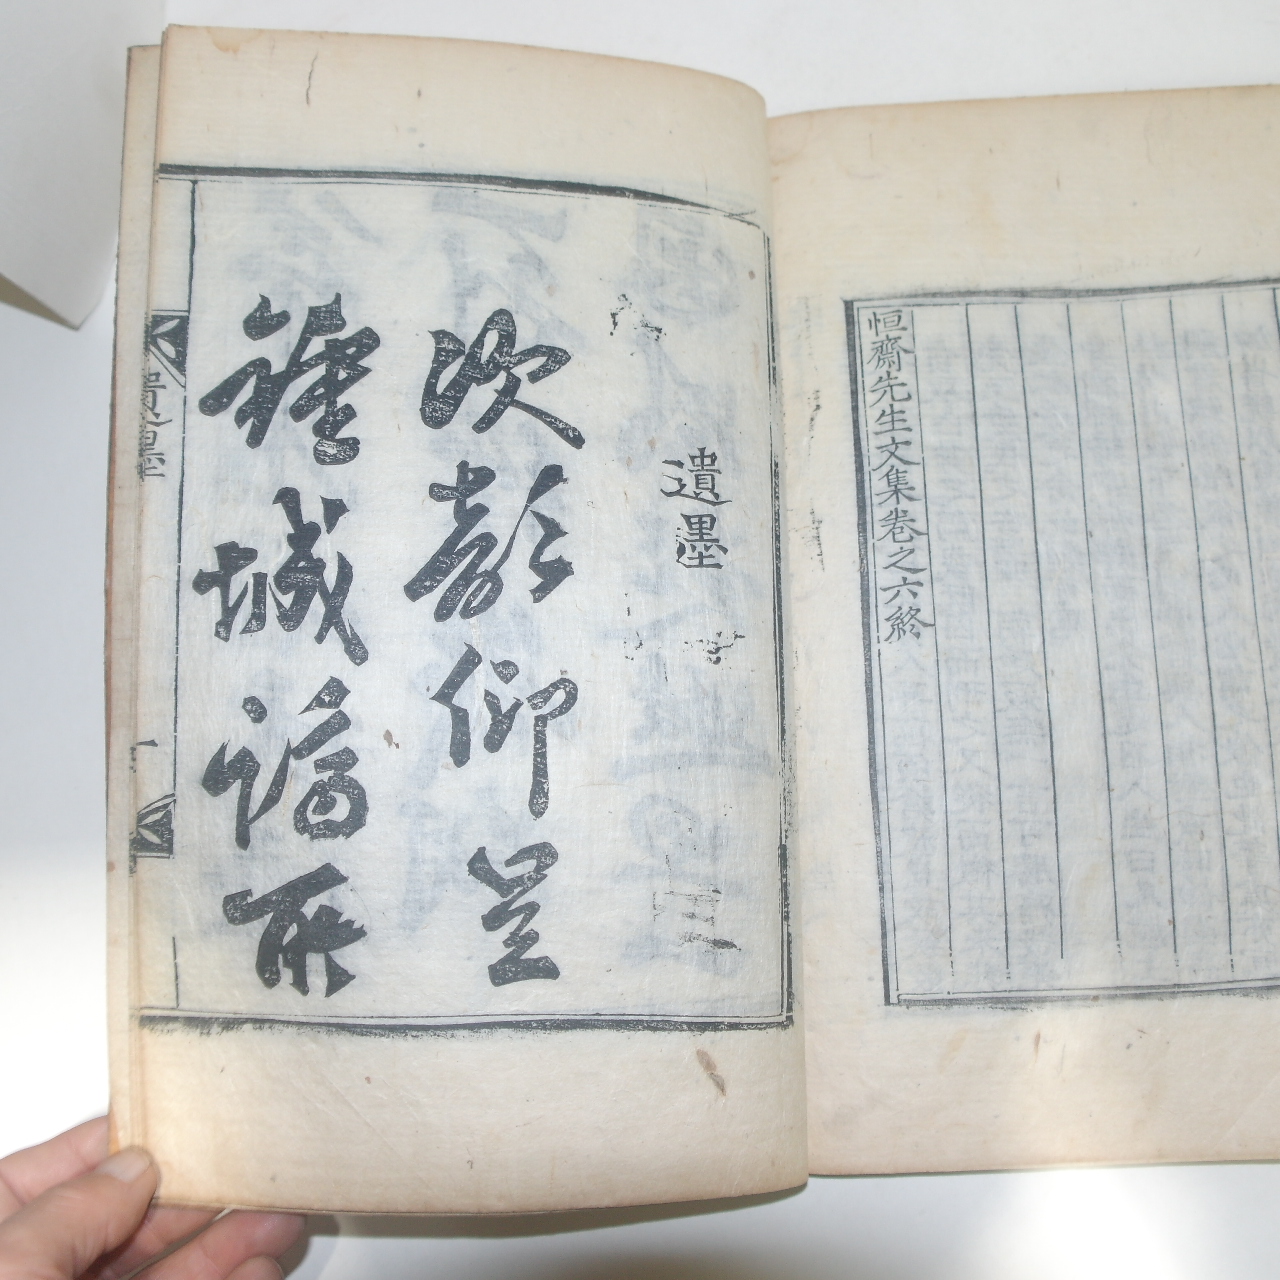 恒齋先生文集卷之六終
遺墨
次韻仰呈
鍾城謫所
遺墨
一